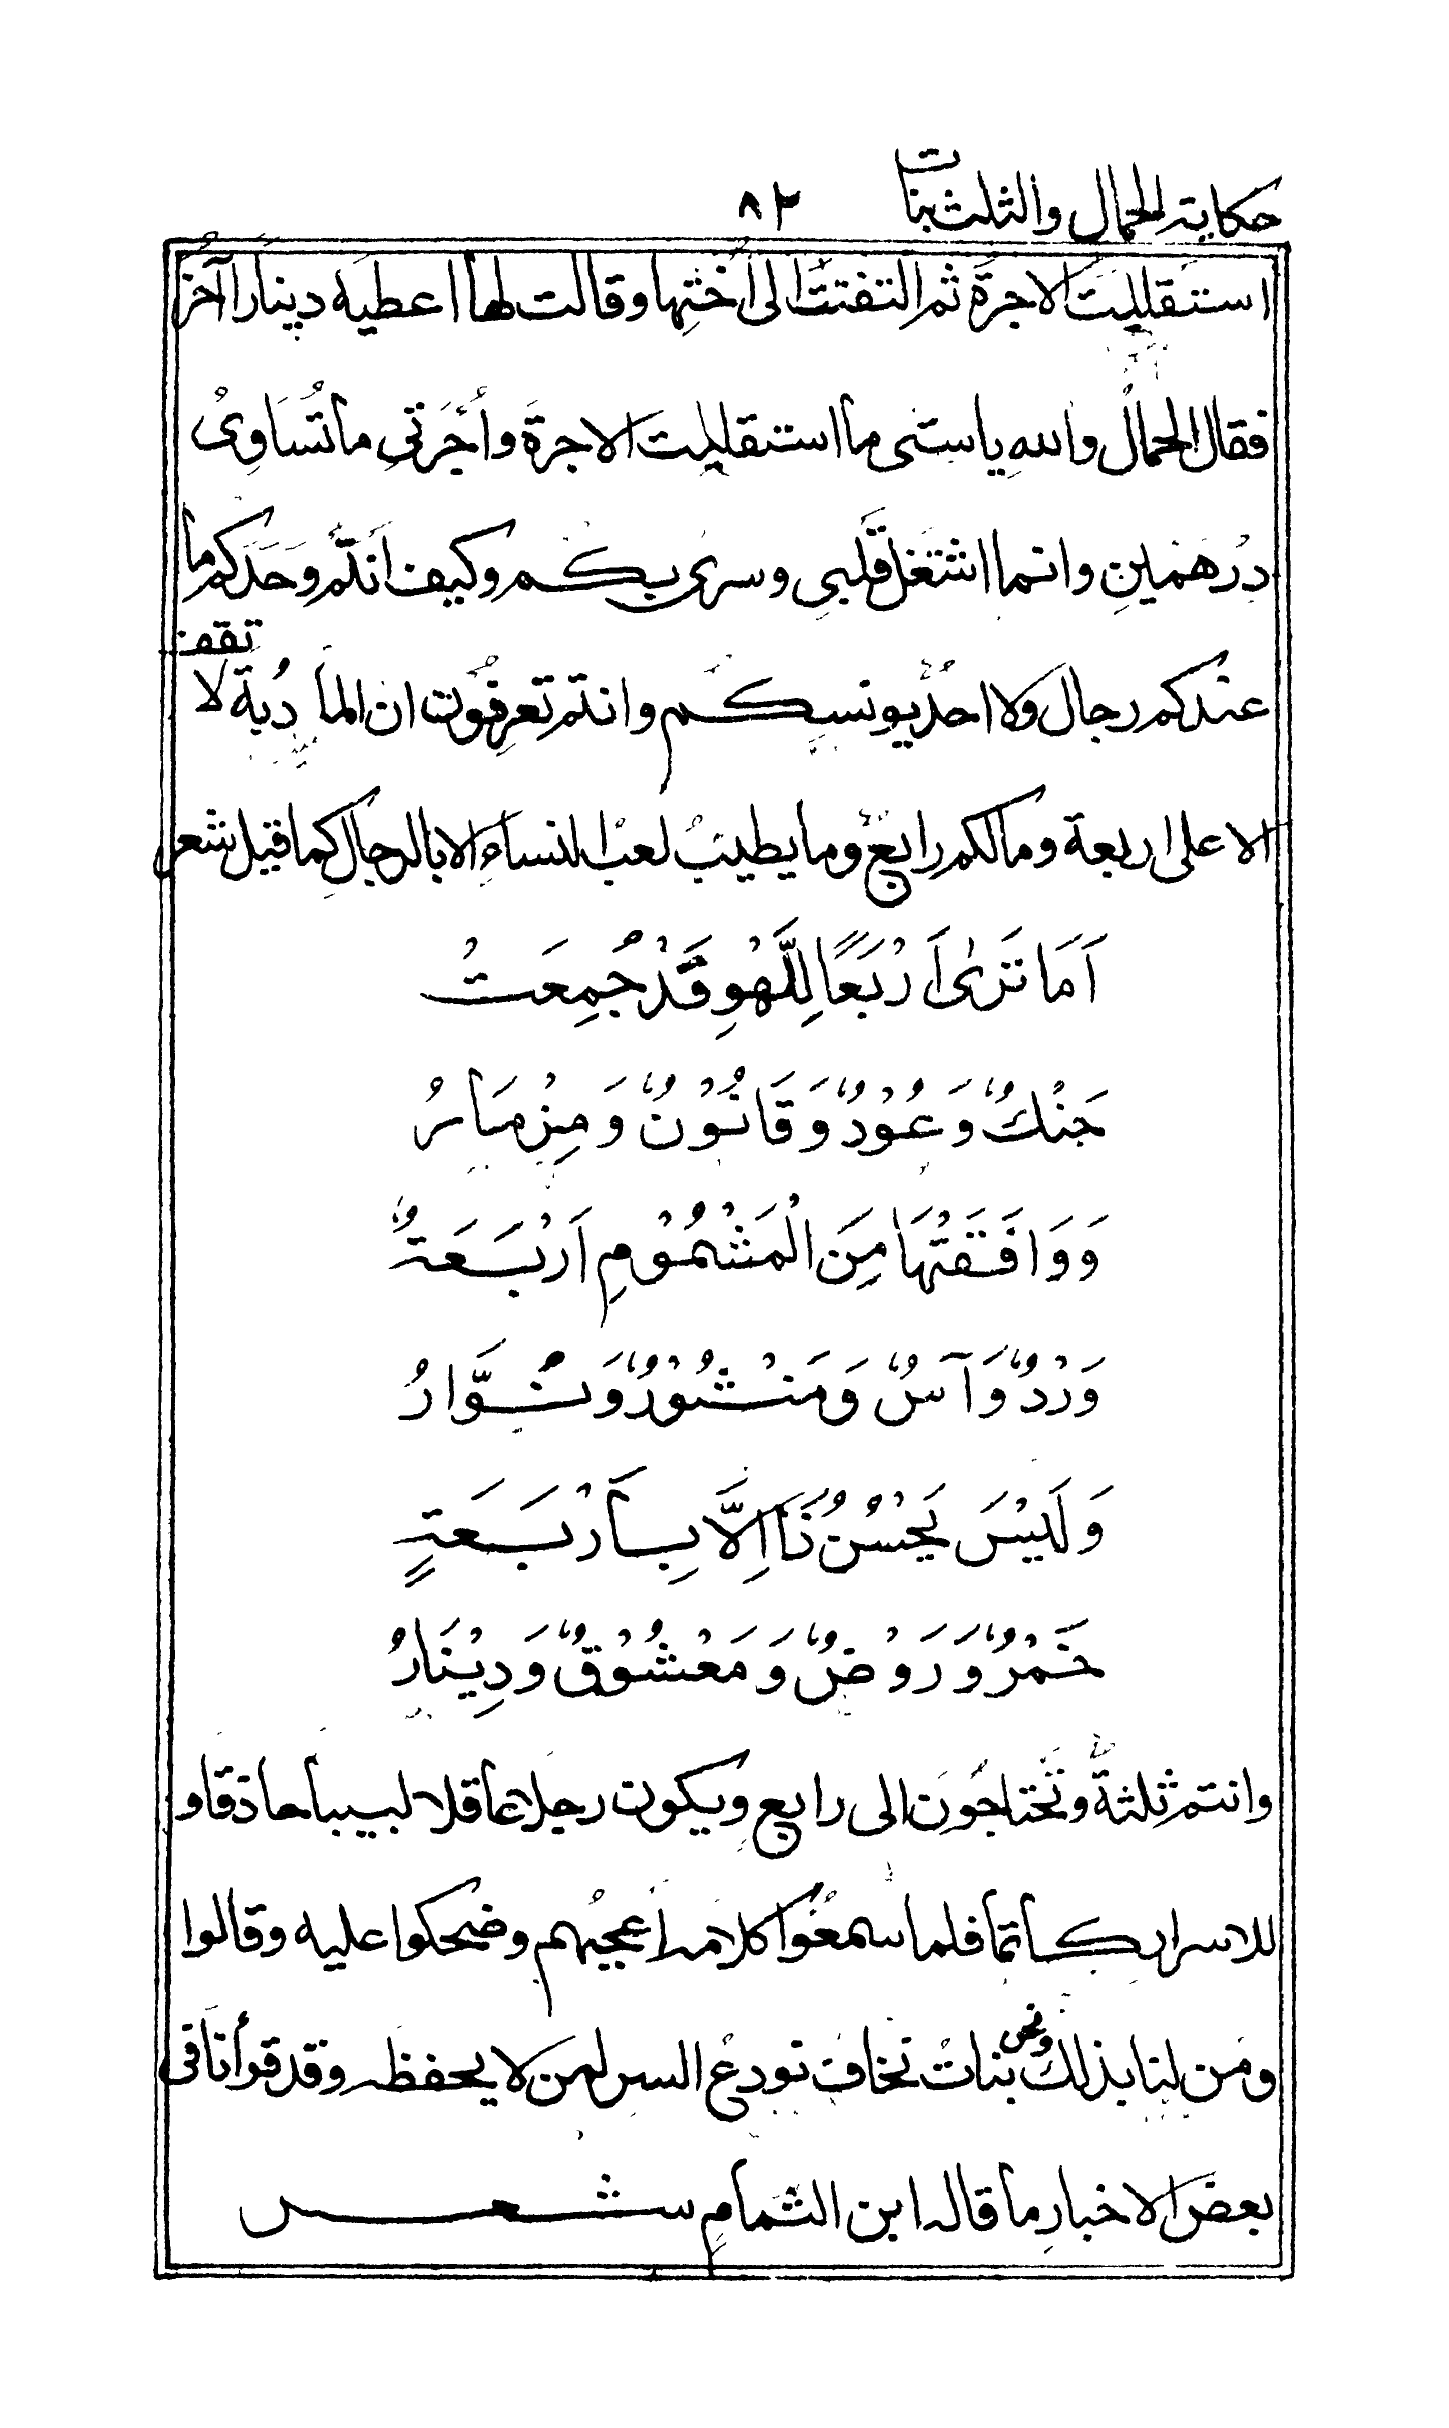 حكاية الحمال والثلث بنات ٨٢
استقليت الاجرة ثم التفتت الى اختها وقالت لها اعطيه دينارا آخر
فقال الحمال والله يا ستى ما استقليت الاجرة وأُجرَتي ما تُساوِىْ
دِرهمَينِ وانما اشتغل قلبي وسرى بكم وكيف انتم وحدكم ما
عندكم رجال ولا احد يونسكم وانتم تعرفون ان المأدُبة لا تقف
الا على اربعة وما لكم رابع وما يطيب لعب النساءِ الا بالرجال كما قيل شعر
اَمَا تَرٰى اَرْبَعًا لِلَّهْوِ قَدْ جُمِعَتْ
جَنْكٌ وَعُوْدٌ وَقَانُوْنٌ وَمِزْمَارُ
وَوَافَقَتْهَا مِنَ الْمَشْمُوْمِ اَرْبَعَةٌ
وَرْدٌ وَآسٌ وَمَنْثُوْرٌ وَنُوَّارُ
وَلَيْسَ يَحْسُنُ ذَا اِلَّا بِأَرْبَعَةٍ
خَمْرٌ وَرَوْضٌ وَمَعْشُوْقٌ وَدِيْنَارُ
وانتم ثلثة وتحتاجون الى رابع ويكون رجلا عاقلا لبيبا حاذقا و
للاسرار كاتما فلما سمعوا كلامه اعجبهم وضحكوا عليه وقالوا
ومن لنا بذلك ونحن بنات نخاف نودع السر لمن لا يحفظه وقد قرأنا فى
بعض الاخبارِ ما قاله ابن الثمام شعر